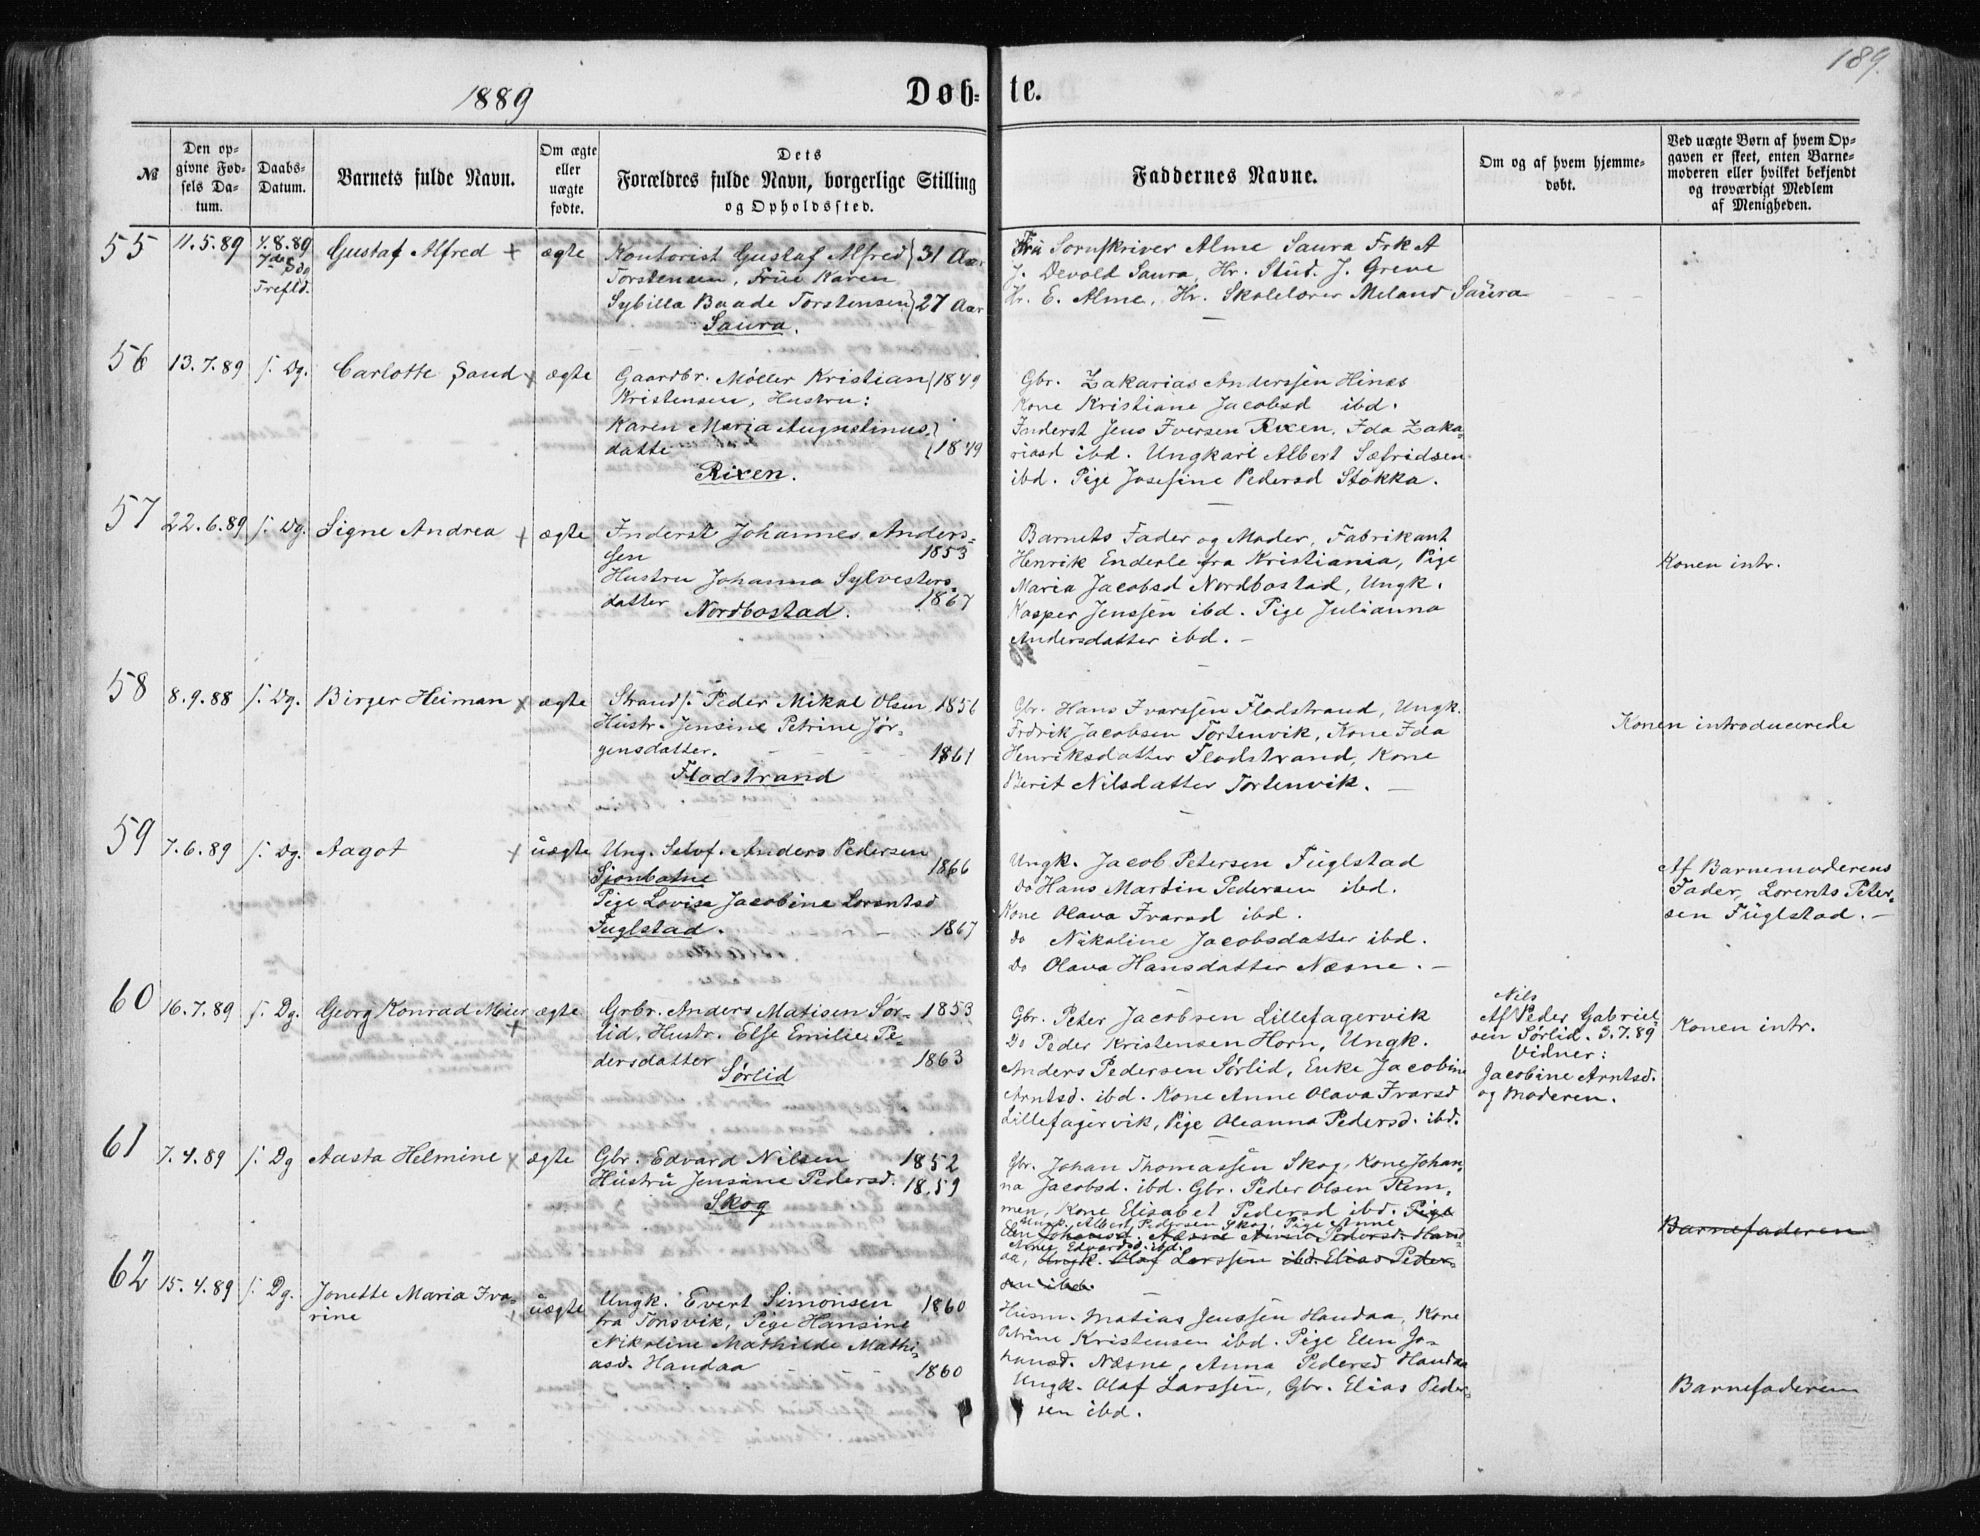 189.
1889
Døb=
te.
№
Den op=
givne Fød=
sels Da=
tum.
Daabs=
Datum.
Barnets fulde Navn.
Om ægte
eller
uægte
fødte.
Dets
Forældres fulde Navn, borgerlige Stilling
og Opholdssted.
Faddernes Navne.
Om og af hvem hjemme=
døbt.
Ved uægte Børn af hvem Op=
gaven er skeet, enten Barne=
moderen eller hvilket bekjendt
og troværdigt Medlem
af Menigheden.
55
11.5.89
4.8.89
7de Sdg
Trefld.
Gustaf Alfred +
ægte
Kontorist Gustaf Alfred } 31 Aar
Torstensen, Frue Karen
Sybilla Baade Torstensen } 27 Aar
Saura.
Fru Sornskriver Alme Saura Frk A
J. Devold Saura, Hr. Stud. J. Greve
Hr. E. Alme, Hr. Skolelærer Meland Saura
56
13.7.89
s. Dg.
Carlotte Sand +
ægte
Gaardbr. Møller Kristian { 1849
Kristensen, Hustru:
Karen Maria Augustinus
datte { 1849
Rixen.
Gbr. Zakarias Anderssen Hines
Kone Kristiane Jacobsd ibd.
Inderst Jens Iversen Rixen, Ida Zaka=
riasd ibd. Ungkarl Albert Sefridsen
ibd. Pige Josefine Pedersd Stokka.
57
22.6.89
s. Dg.
Signe Andrea +
ægte
Inderst Johannes Anders=
sen 1853
Hustru Johanna Sylvesters
datter 1867
Nordbostad.
Barnets Fader og Moder, Fabrikant
Henrik Enderle fra Kristiania, Pige
Maria Jacobsd Nordbostad, Ungk.
Kasper Jenssen ibd. Pige Julianna
Andersdatter ibd. -
Konen intr.
58
8.9.88
s. Dg.
Birger Heiman +
ægte
Strands. Peder Mikal Olsen 1856
Hustr. Jensine Petrine Jør=
gensdatter. 1861
Flodstrand
Gbr. Hans Ivarssen Flodstrand, Ungk.
Fredrik Jacobsen Tortenvik, Kone Ida
Henriksdatter Flodstrand, Kone
Berit Nilsdatter Tortenvik. -
Konen introducerede
59
7.6.89
s. Dg.
Aagot +
uægte
Ung. Selvf. Anders Pedersen
1866
Sjonbotne
Pige Lovise Jacobine Lorentsd
Fuglstad. 1867
Ungk. Jacob Petersen Fuglstad
do Hans Martin Pedersen ibd.
Kone Olava Ivarsd ibd.
do Nikoline Jacobsdatter ibd.
do Olava Hansdatter Næsne. -
Af Barnemoderens
Fader, Lorents Peter=
sen Fuglstad. -
60
16.7.89
s. Dg.
Georg Konrad Meier +
ægte
Grbr. Anders Matisen Sør= 1853
lid, Hustr. Else Emilie Pe=
dersdatter 1863
Sørlid
Gbr. Peter Jacobsen Lillefagervik
Do Peder Kristensen Horn, Ungk.
Anders Pedersen Sørlid, Enke Jacobine
Arntsd. ibd. Kone Anne Olava Ivarsd
Lillefagervik, Pige Oleanna Pedersd. ibd.
Nils
Af Peder Gabriel=
sen Sørlid. 3.7.89
Vidner:
Jacobine Arntsd.
og Moderen.
Konen intr.
61
7.4.89
s. Dg
Aasta Helmine +
ægte
Gbr. Edvard Nilsen 1852
Hustru Jensine Pedersd. 1859
Skog
Gbr. Johan Thomassen Skog, Kone Johan=
na Jacobsd. ibd. Gbr. Peder Olsen Rem=
men, Kone Elisabet Pedersd ibd. Pige
Ungk. Albert Pedersen Skog, Pige Anne
Elen Johansd. Næsne Anne Pedersd. Hand=
Anne Edvardsd. ibd.
aa, Ungk. Olaf Larssen ibd. Elias Peder=
sen ibd.
Barnefaderen
62
15.4.89
s. Dg.
Jonette Maria Iva=
rine +
uægte
Ungk. Evert Simonsen 1860
fra Tonsvik, Pige Hansine
Nikoline Mathilde Mathi=
asd. Handaa 1860
Husm. Matias Jenssen Handaa, Kone
Petrine Kristensen ibd. Pige Elen Jo=
hansd. Næsne, Anna Pedersd Handaa
Ungk. Olaf Larssen, Gbr. Elias Peder=
sen ibd.
Barnefaderen